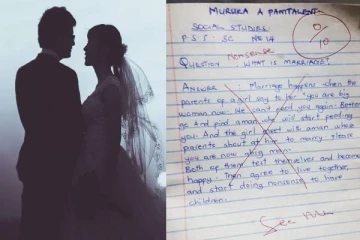 SOCIAL STUDIES
0
10
Nonsense
QUESTION : WHAT IS MARRIAGE?
ANSWER : Marriage happens when the
parents of a girl say to her "you are big
woman now. We can't feed you again. Better
go and find a man who will start feeding
you. And the girl meet with a man whose
parents shout at him to marry please
you are now a big man.
Both of them test themselves and become
happy. Then agree to live together,
and start doing nonsense to have
children.
See me